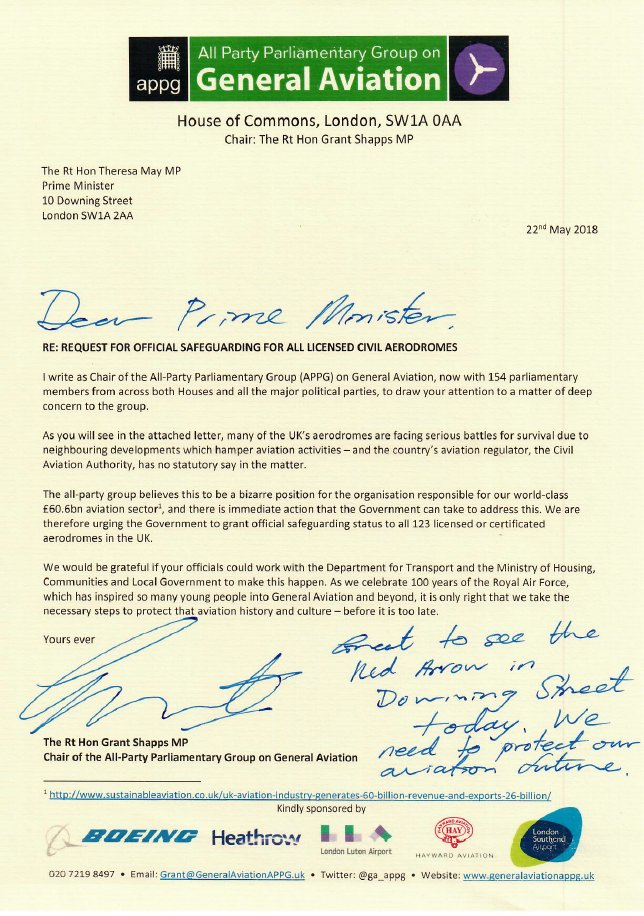 appg
All Party Parliamentary Group on
General Aviation
House of Commons, London, SW1A 0AA
Chair: The Rt Hon Grant Shapps MP
The Rt Hon Theresa May MP
Prime Minister
10 Downing Street
London SW1A 2AA
22nd May 2018
Dear Prime Minister.
RE: REQUEST FOR OFFICIAL SAFEGUARDING FOR ALL LICENSED CIVIL AERODROMES
I write as Chair of the All-Party Parliamentary Group (APPG) on General Aviation, now with 154 parliamentary
members from across both Houses and all the major political parties, to draw your attention to a matter of deep
concern to the group.
As you will see in the attached letter, many of the UK's aerodromes are facing serious battles for survival due to
neighbouring developments which hamper aviation activities – and the country's aviation regulator, the Civil
Aviation Authority, has no statutory say in the matter.
The all-party group believes this to be a bizarre position for the organisation responsible for our world-class
£60.6bn aviation sector1, and there is immediate action that the Government can take to address this. We are
therefore urging the Government to grant official safeguarding status to all 123 licensed or certificated
aerodromes in the UK.
We would be grateful if your officials could work with the Department for Transport and the Ministry of Housing,
Communities and Local Government to make this happen. As we celebrate 100 years of the Royal Air Force,
which has inspired so many young people into General Aviation and beyond, it is only right that we take the
necessary steps to protect that aviation history and culture – before it is too late.
Yours ever
Great to see the
Red Arrow in
Downing Street
today. We
need to protect our
aviation future.
The Rt Hon Grant Shapps MP
Chair of the All-Party Parliamentary Group on General Aviation
1 http://www.sustainableaviation.co.uk/uk-aviation-industry-generates-60-billion-revenue-and-exports-26-billion/
Kindly sponsored by
BOEING
Heathrow
London Luton Airport
HAY
HAYWARD AVIATION
London
Southend
Airport
020 7219 8497 • Email: Grant@GeneralAviationAPPG.uk • Twitter: @ga_appg • Website: www.generalaviationappg.uk